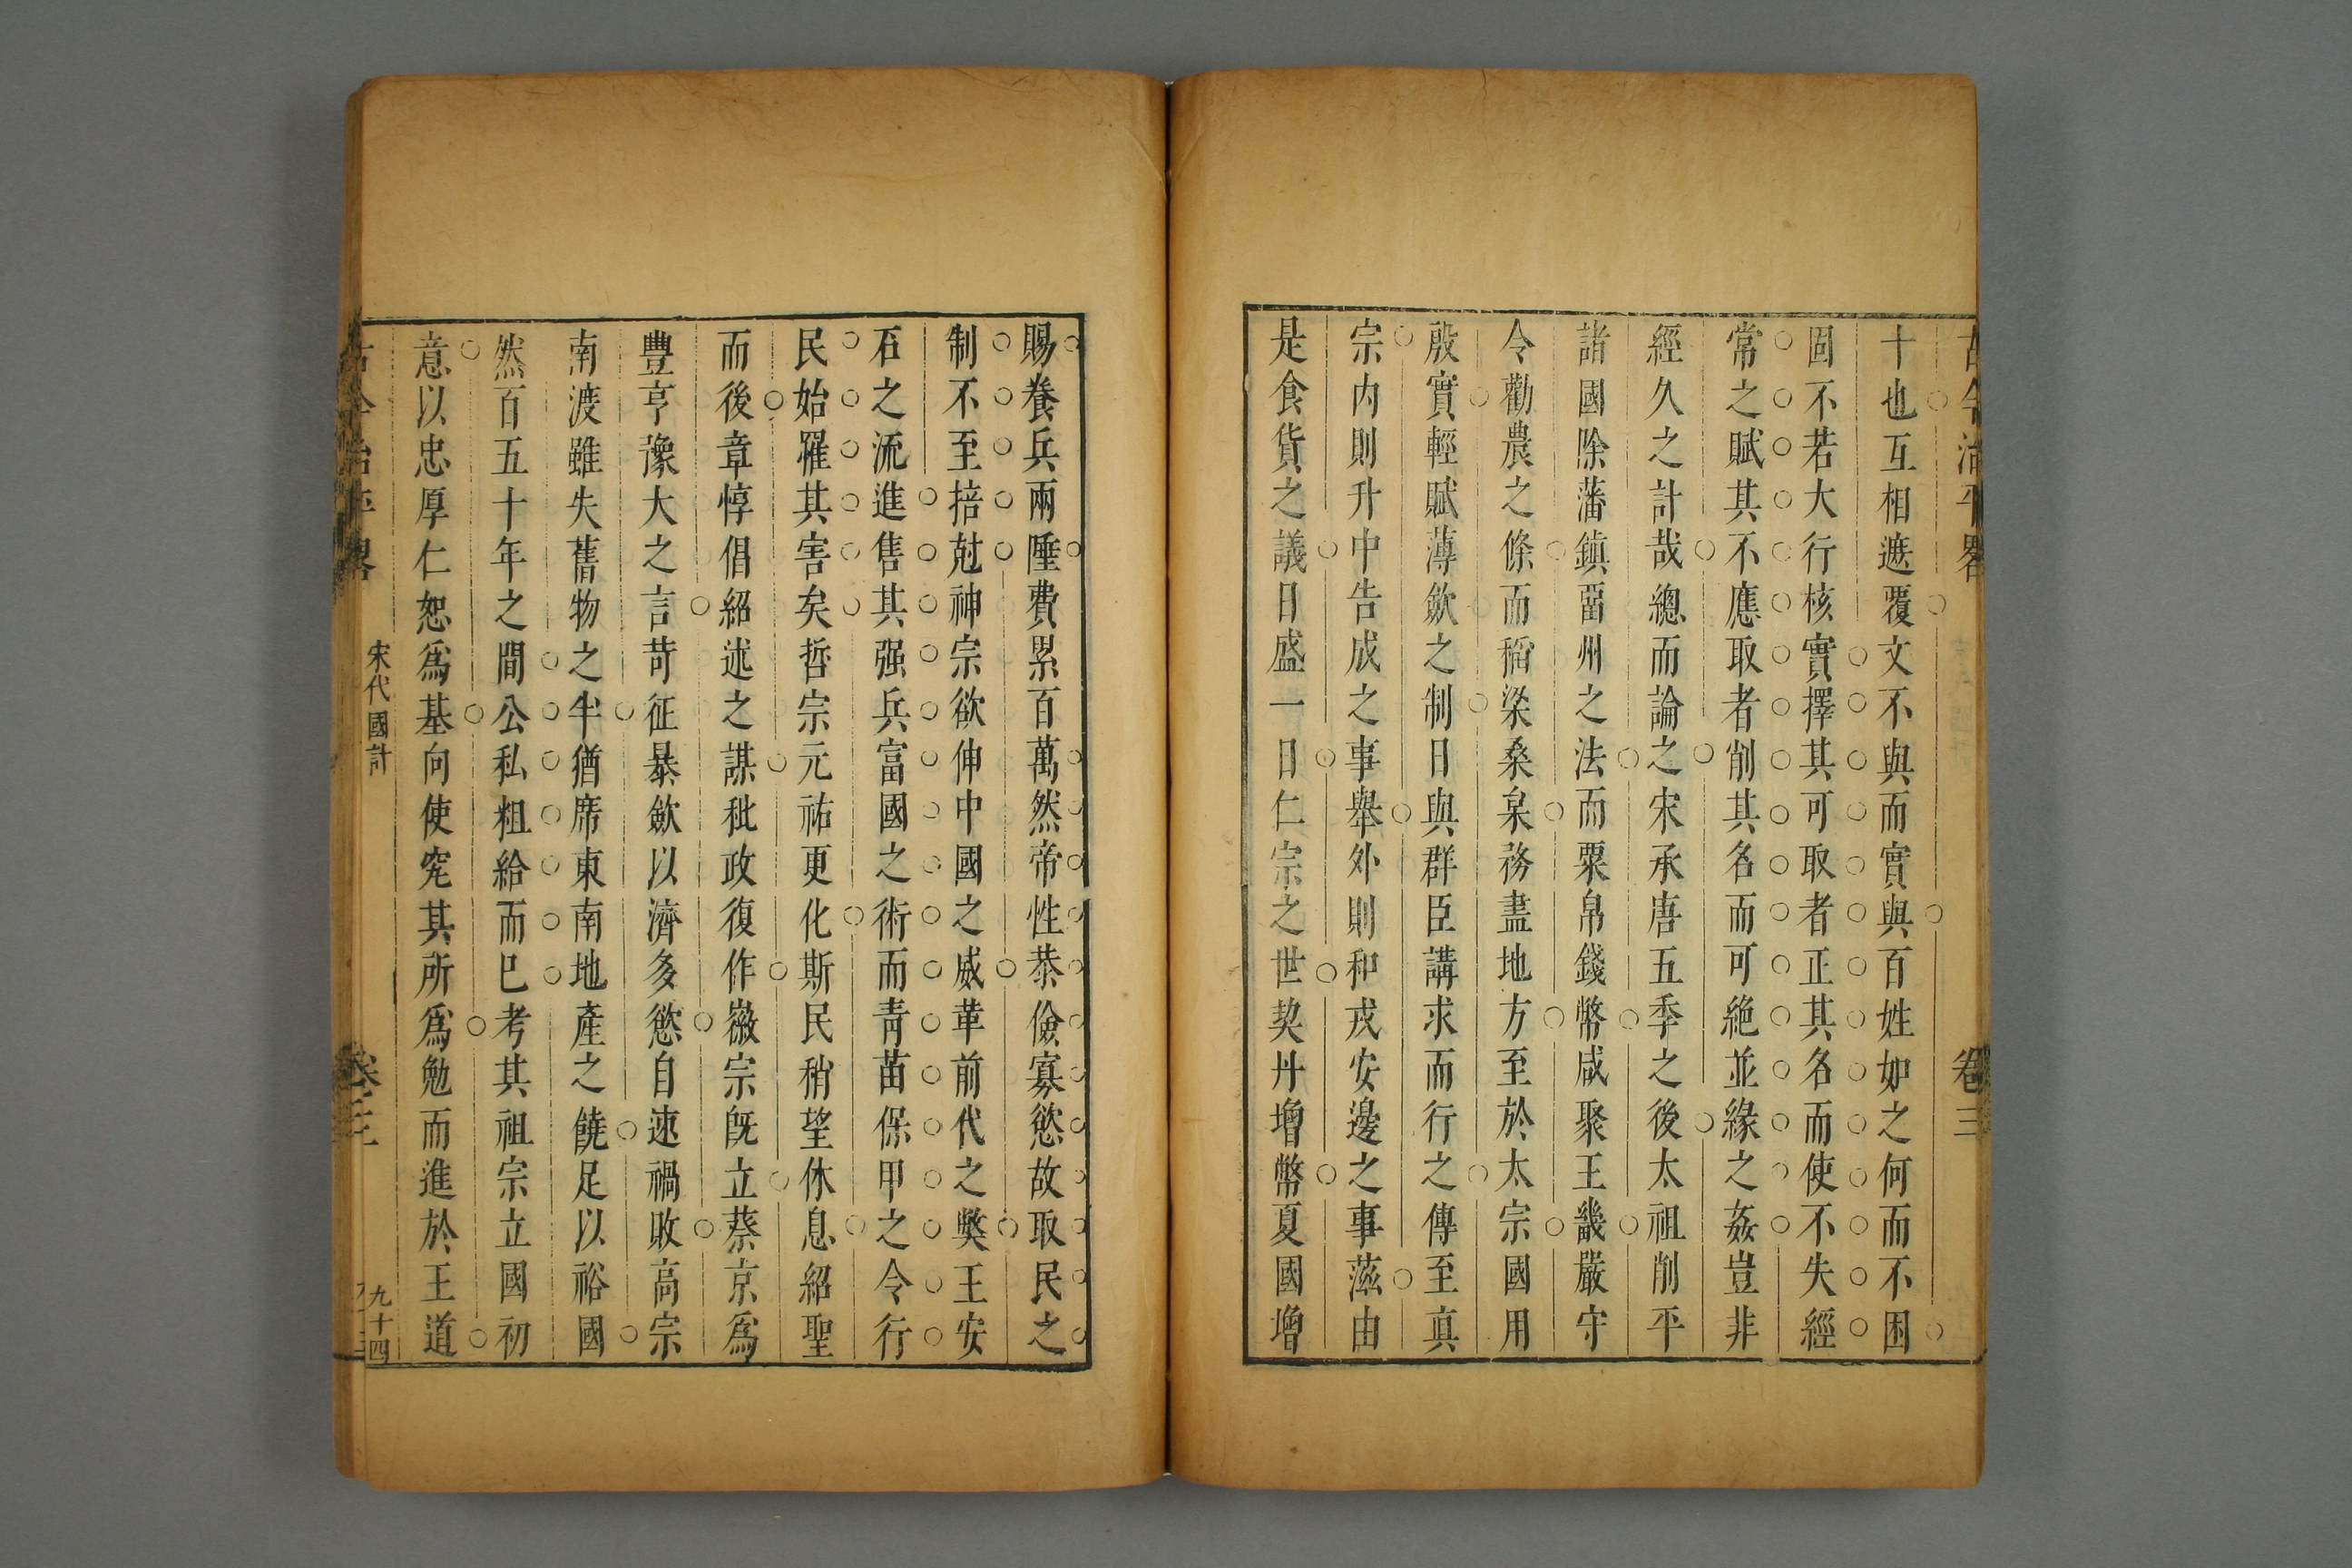 古今治平畧
卷三
十也互相遮覆文不與而實與百姓如之何而不困
固不若大行核實擇其可取者正其名而使不失經
常之賦其不應取者削其名而可絕並緣之姦豈非
經久之計哉總而論之宋承唐五季之後太祖削平
諸國除藩鎮畱州之法而粟帛錢幣咸聚王畿嚴守
令勸農之條而稻梁桑枲務盡地方至於太宗國用
殷實輕賦薄歛之制日與群臣講求而行之傳至真
宗内則升中告成之事舉外則和戎安邊之事滋由
是食貨之議日盛一日仁宗之世契丹增幣夏國增
賜養兵兩陲費累百萬然帝性恭儉寡慾故取民之
制不至掊尅神宗欲伸中國之威革前代之獘王安
石之流進售其强兵富國之術而靑苗保甲之令行
民始罹其害矣哲宗元祐更化斯民稍望休息紹聖
而後章惇倡紹述之謀秕政復作徽宗旣立蔡京爲
豐亨豫大之言苛征暴歛以濟多慾自速禍敗高宗
南渡雖失舊物之半猶席東南地產之饒足以裕國
然百五十年之間公私粗給而巳考其祖宗立國初
意以忠厚仁恕爲基向使究其所爲勉而進於王道
古今治平畧
宋代國計
卷三
九十四